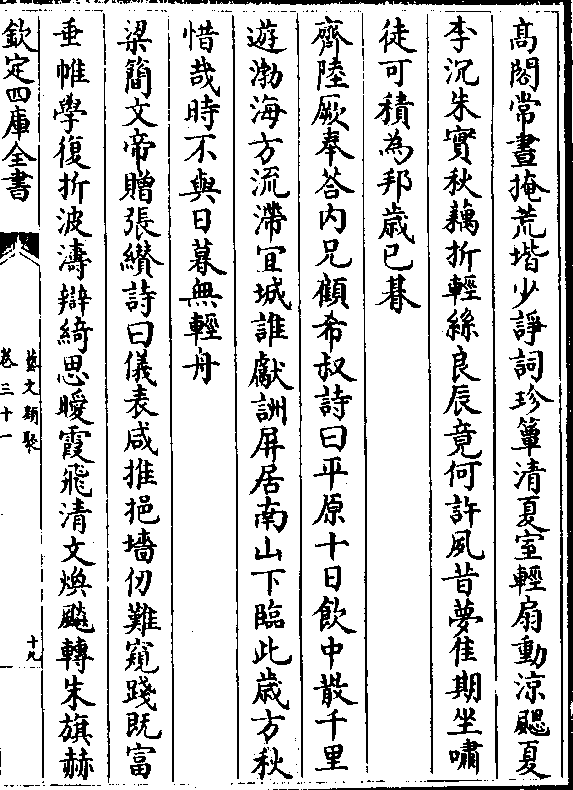 高閣常晝掩荒堦少諍詞珍簟清夏室輕扇動涼颸夏
李沉朱實秋藕折輕絲良辰竟何許夙昔夢佳期坐嘯
徒可積為邦歲已朞
齊陸厥奉荅内兄顧希叔詩曰平原十日飲中散千里
遊渤海方流滯宜城誰獻詶屏居南山下臨此歲方秋
惜哉時不與日暮無輕舟
梁簡文帝贈張纘詩曰儀表咸推挹墻仞難窺踐既富
垂帷學復折波濤辯綺思曖霞飛清文煥飈轉朱旗赫
欽定四庫全書
藝文類聚
卷三十一
十九